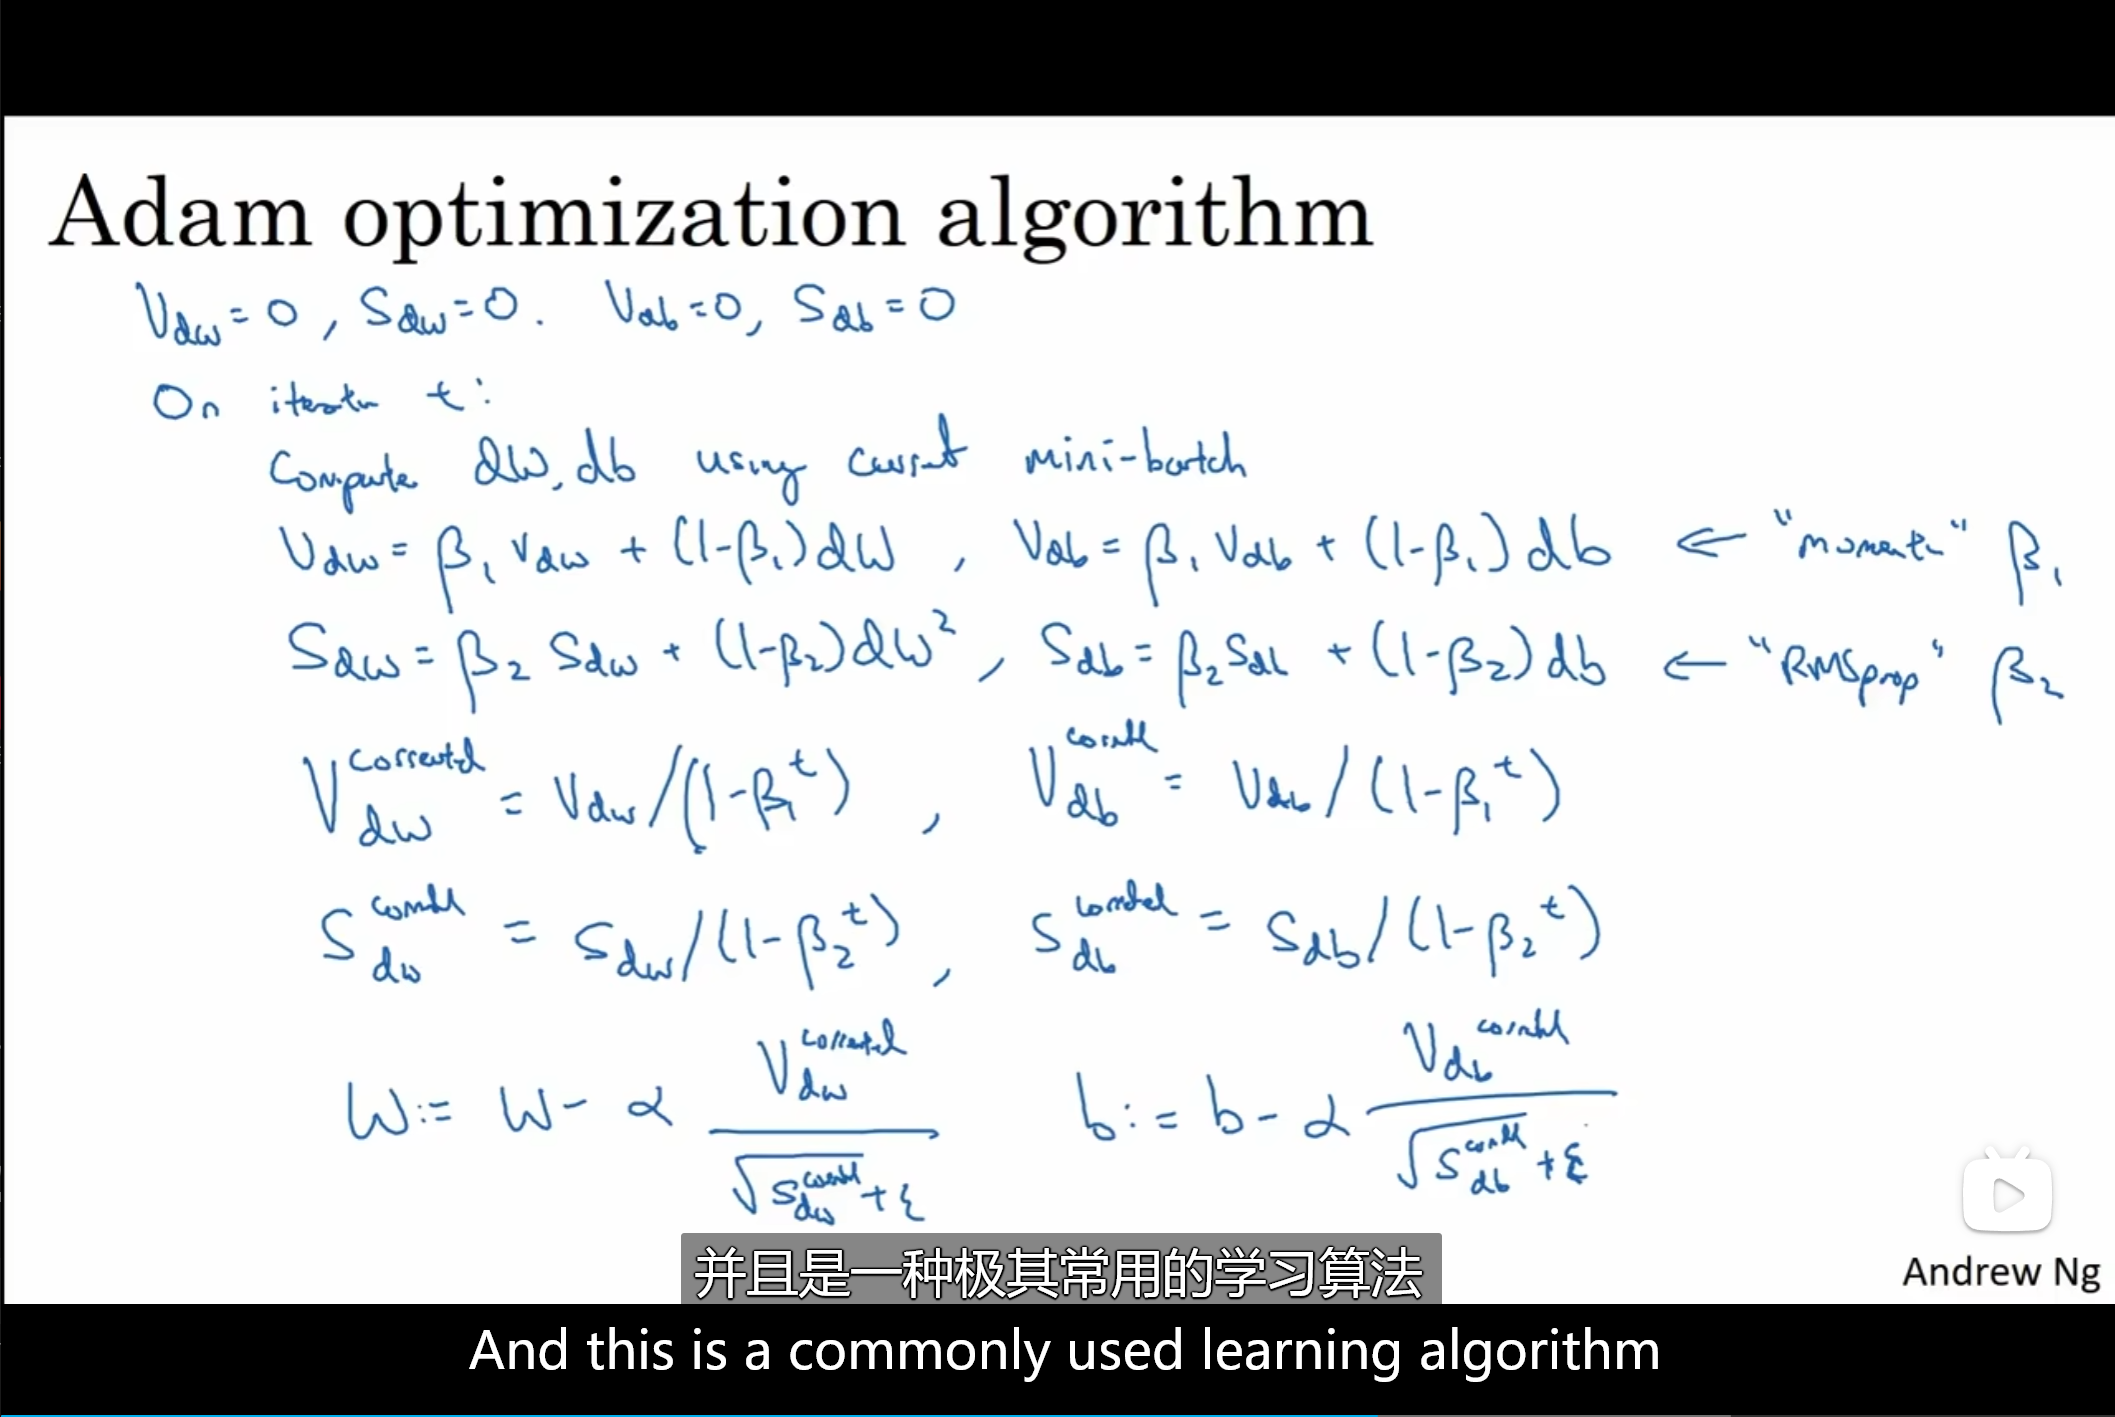 Adam optimization algorithm
Vdw = 0, Sdw = 0. Vdb = 0, Sdb = 0
On iteratn t:
Compute dW, db using current mini-batch
Vdw = β₁ Vdw + (1-β₁) dW , Vdb = β₁ Vdb + (1-β₁) db ← "moment" β₁
Sdw = β₂ Sdw + (1-β₂) dW² , Sdb = β₂ Sdb + (1-β₂) db ← "RMSprop" β₂
Vdw^corrected = Vdw/(1-β₁^t) , Vdb^corrected = Vdb/(1-β₁^t)
Sdw^corrected = Sdw/(1-β₂^t) , Sdb^corrected = Sdb/(1-β₂^t)
W := W - α Vdw^corrected / √Sdw^corrected + ε b := b - α Vdb^corrected / √Sdb^corrected + ε
并且是一种极其常用的学习算法
Andrew Ng
And this is a commonly used learning algorithm